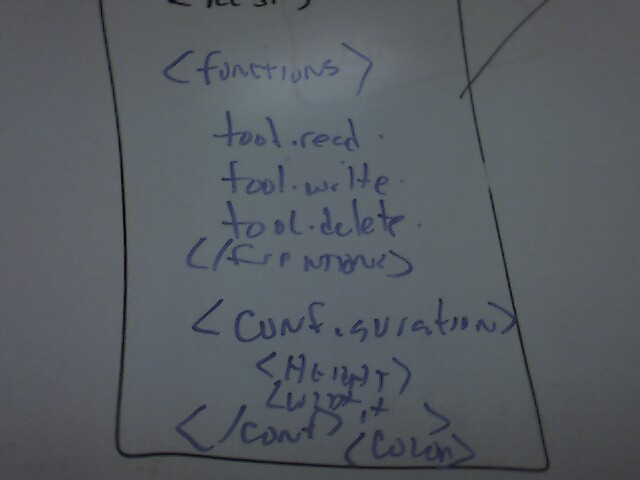 <functions>
tool.read.
tool.write.
tool.delete.
</functions>
<configuration>
<Height>
</conf>
<Color>